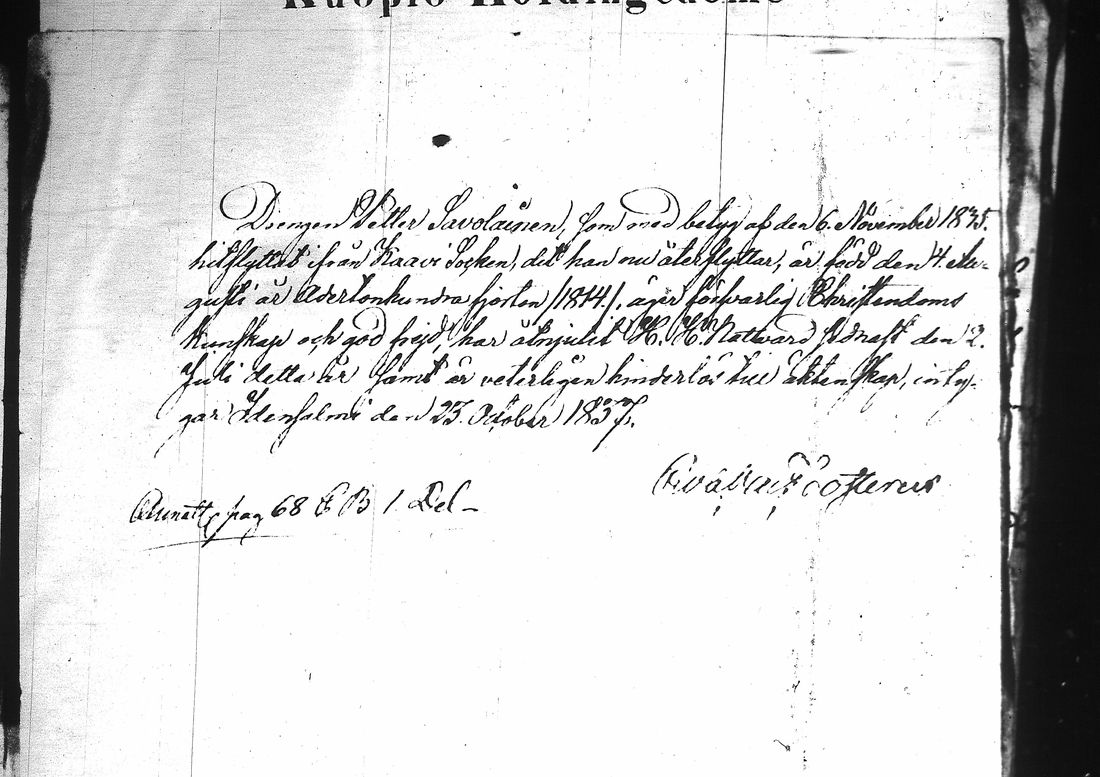 Drengen Petter Savolainen, som med betyg af den 6. November 1835.
hitflyttat ifrån Kaavi Socken, dit han nu återflyttar, är född den 4. Au-
gusti år Adertonhundra fjorton /1814./. äger försvarlig Christendoms
kunskap och god frejd, har åtnjutit H. H. Nattvard sednast den 2.
Juli detta år samt är veterligen hinderlös till äktenskap, inty-
gar Idensalmi den 23. October 1837.
pag 68 C B 1 Del -